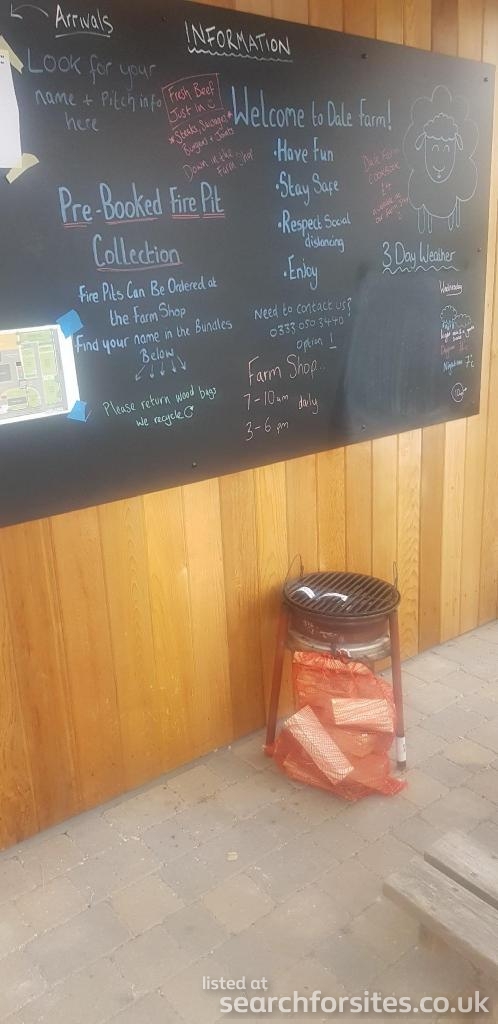 Arrivals
INFORMATION
Look for your
name + Pitch info
here
Fresh Beef
Just in
*Steaks, Sausages +
Burgers + Joints
Down in the Farm Shop
Welcome to Dale Farm!
•Have Fun
•Stay Safe
•Respect Social
distancing
•Enjoy
Need to contact us?
0333 050 3440
Option 1
Farm Shop...
7-10am daily
3-6 pm
Pre-Booked Fire Pit
Collection
Fire Pits Can Be Ordered at
the Farm Shop
Find your name in the Bundles
Below
Please return wood bags
we recycle
Dale Farm
Cookbook
3 Day Weather
Wednesday
7°c
listed at
searchforsites.co.uk